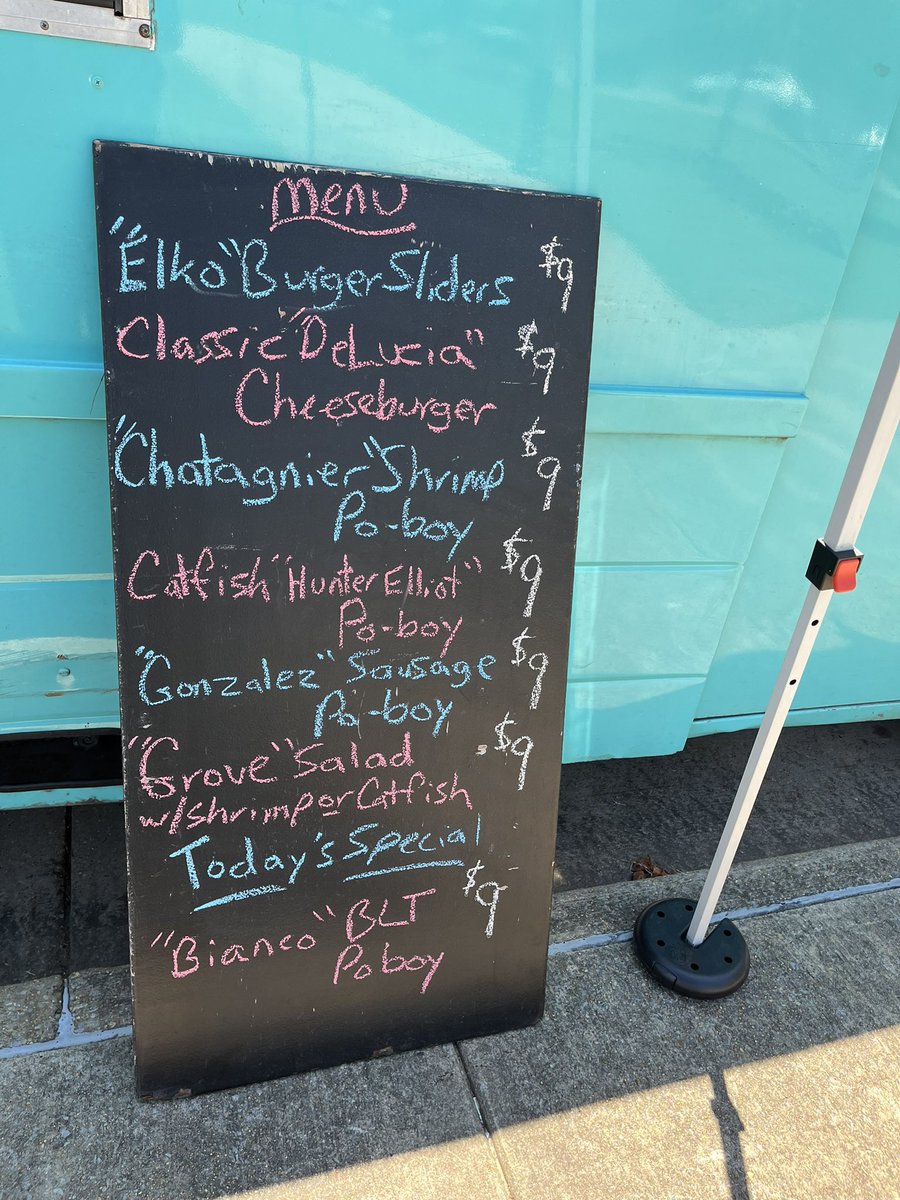 Menu
"Elko" Burger Sliders $9
Classic "DeLucia" $9
Cheeseburger
"Chatagnier" Shrimp $9
Po-boy
Catfish "Hunter Elliot" $9
Po-boy
"Gonzalez" Sausage $9
Po-boy
"Grove" Salad $9
w/shrimp or Catfish
Today's Special
"Bianco" BLT $9
Po boy